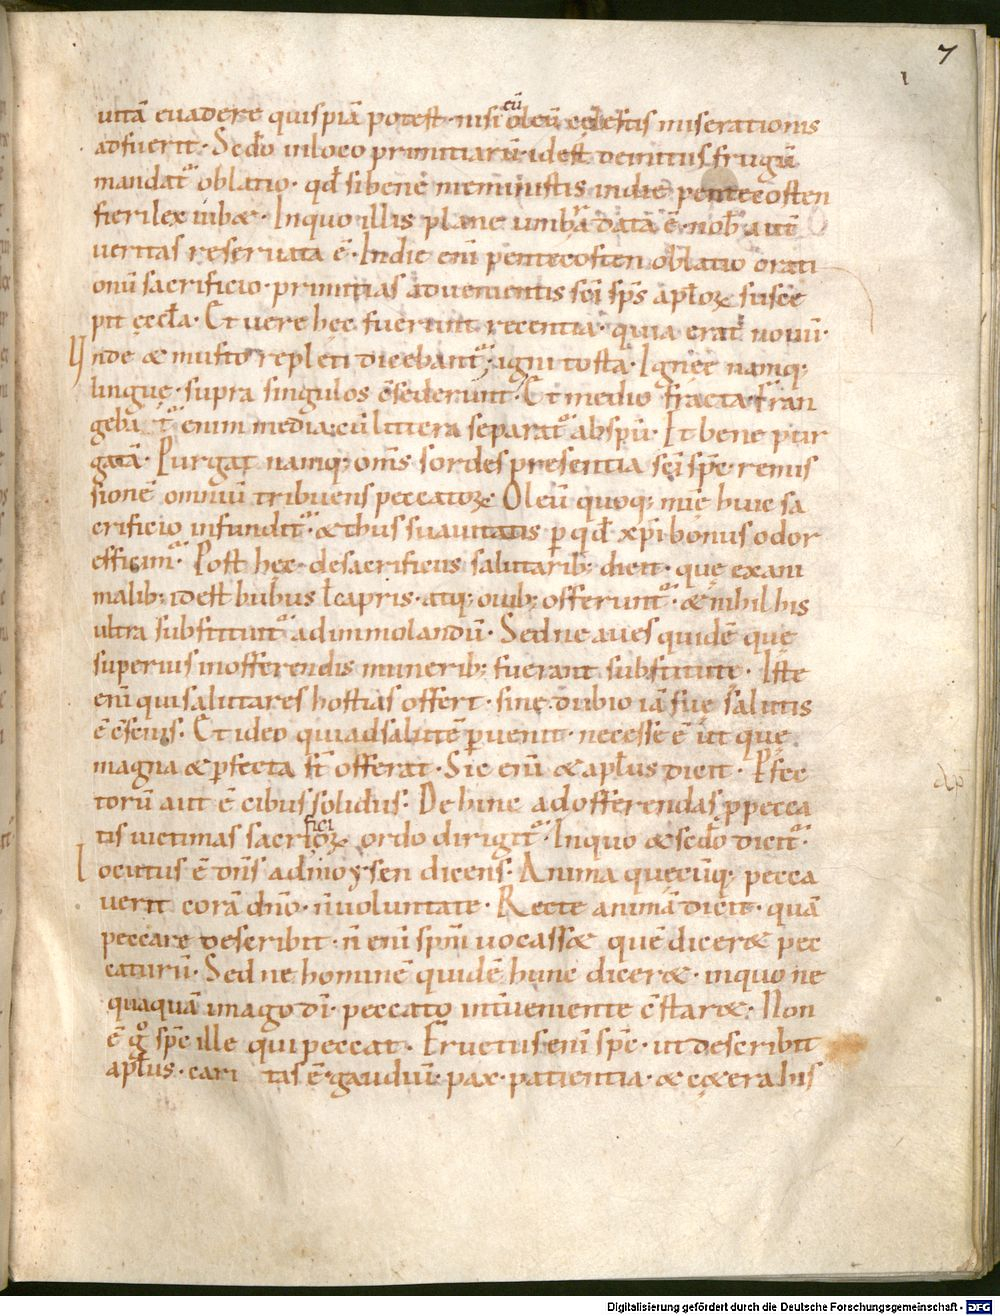 7
uitā euadere quispiā potest · nisi cū oleū celestis miserationis
adfuerit · Sed̄o in loco primitiarū · id est de initus frugū
mandat᷑ oblatio · qd̄ si bene meministis in die pentecosten
fieri lex iubæ · In quo illis plane umbra data ē · nob̄ autē
ueritas reseruata ē · In die enī pentecosten oblatio orati
onū sacrificio · primitias aduenientis sc̄i sp̄s apl̄oꝝ susce
pit ęccl̄a · Et uere hęc fuerunt recentia · quia erat nouū ·
Unde & musto repleti dicebant᷑; igni tosta · Ignee namq;
lingue · supra singulos c̄sederunt · Et medio fracta · fran
gebat᷑ enim media cū littera separat᷑ ab spū · Et bene pur
gata · Purgat namq; om̄s sordes presentia sc̄i sp̄c · remis
sionē omniū tribuens peccatoꝝ · Oleū quoq; mi͞e huic sa
crificio infundit᷑ · & thus suauitatis ꝑ qd̄ xp̄i bonus odor
efficim᷑ · Post hęc · de sacrificiis salutarib; dicit · que ex ani
malib; id est bubus l̄ capris · atq; ouib; offerunt᷑ · & nihil his
ultra substituit᷑ ad immolandū · Sed ne aues quidē que
superius in offerendis munerib; fuerant substitute · Iste
enī qui salutares hostias offert · sine dubio iā suę salutis
ē c̄scius · Et ideo quia ad salutē ꝑuenit · necesse ē ut que
magna & ꝑfecta st̄ offerat · Sic enī & apl̄us dicit · Pfec
torū aut ē cibus solidus · De hinc ad offerendas ꝓ pecca
tis uictimas sacrificioꝝ ordo dirigit᷑ · In quo & sed̄o dicit᷑ ·
Locutus ē dn̄s ad moysen dicens · Anima quecūq; pecca
uerit corā dn̄o · n̄ uoluntate · Recte animā dicit · quā
peccare describit · n̄ enī spm̄ uocass& quē dicer& pec
caturū · Sed ne hominē quidē hunc dicer& · in quo ne
quaquā imago dī · peccato int̄ueniente c̄star& · Non
ē gͦ sp̄c ille qui peccat · Fructus enī sp̄c · ut describit
apl̄us · cari tas ē · gaudiū · pax · patientia · & c&era his
Digitalisierung gefördert durch die Deutsche Forschungsgemeinschaft - DFG